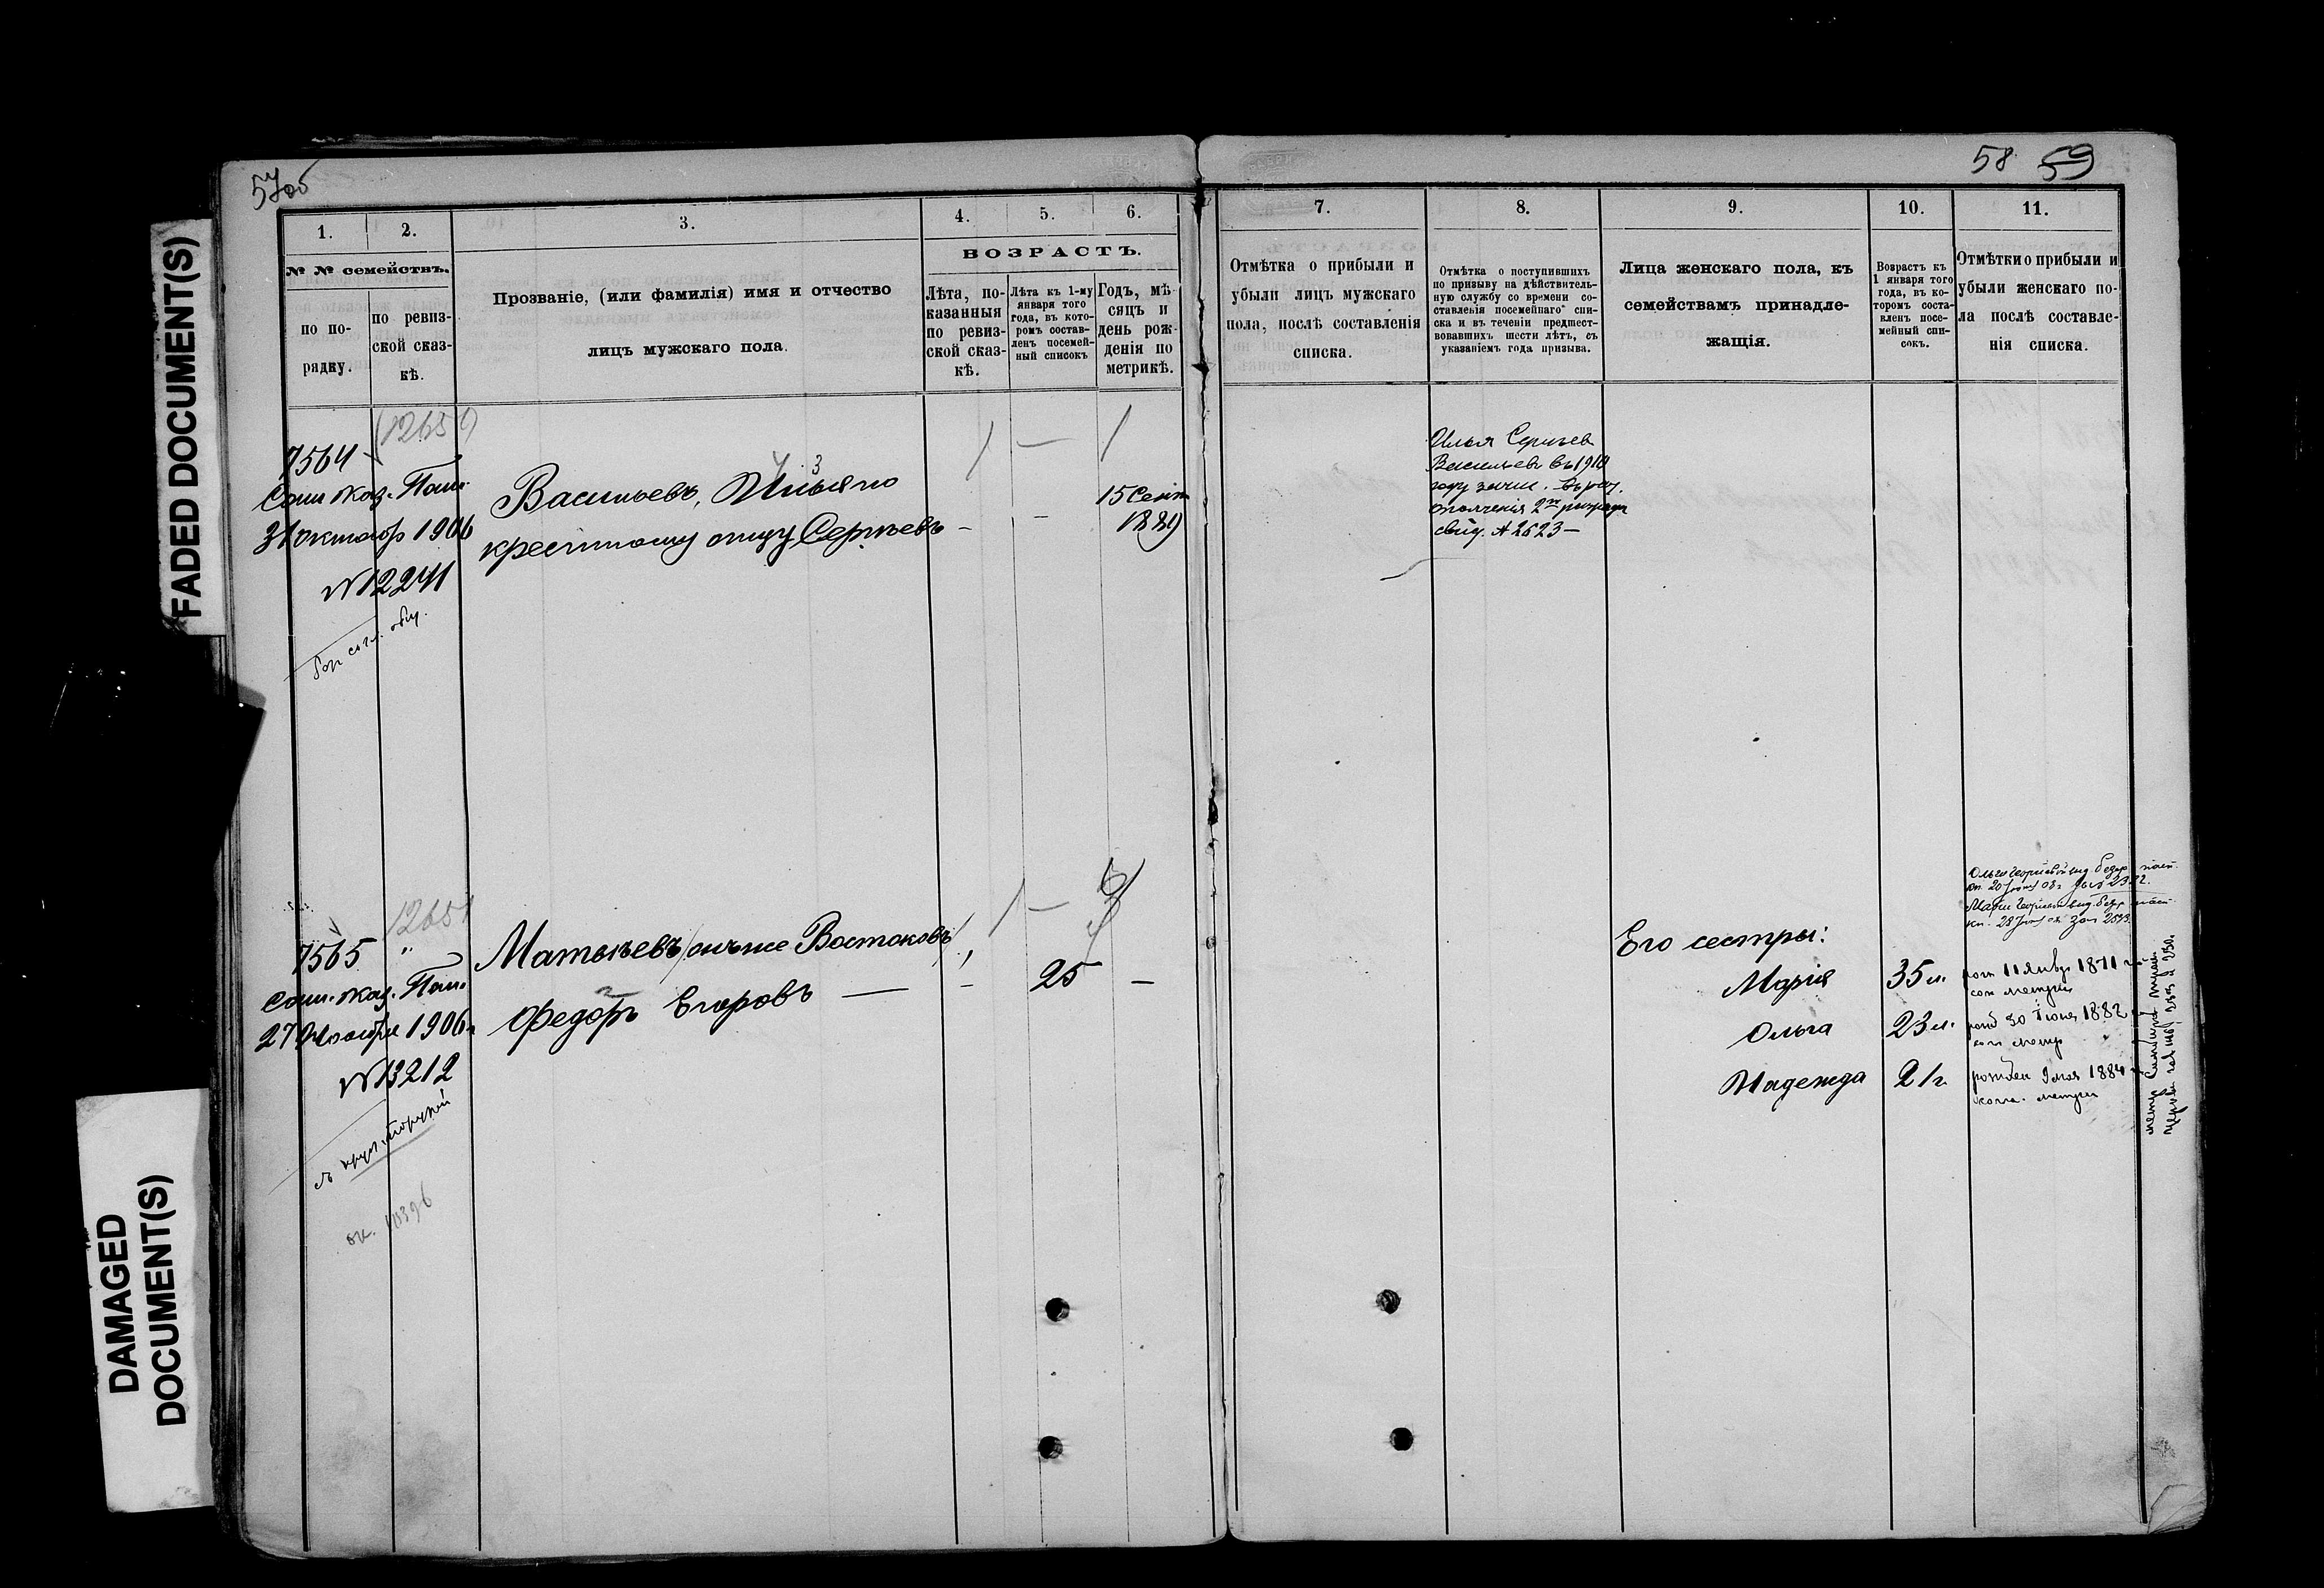 57об
58 59
FADED DOCUMENT(S)
DAMAGED
DOCUMENT(S)
1.
2.
3.
4.
5.
6.
№ № семействъ.
по по-
рядку.
по ревиз-
ской сказ-
кѣ.
Прозваніе, (или фамилія) имя и отчество
лицъ мужскаго пола.
ВОЗРАСТЪ.
Лѣта, по-
казанныя
по ревиз-
ской сказ-
кѣ.
Лѣта къ 1-му
января того
года, въ кото-
ромъ состав-
ленъ посемей-
ный списокъ
Годъ, мѣ-
сяцъ и
день рож-
денія по
метрикѣ.
7564
Каз. Пал.
31 октября 1906
№ 12241
Васильевъ, Илья по
крестному отцу Сергѣевъ
— —
15 Сент
1889
7565 "
Каз. Пал.
27 Ноября 1906 г
№ 13212
Матвѣевъ (онъ же Востоковъ)
Федоръ Егоровъ —
— 25 —
7.
8.
9.
10.
11.
Отмѣтка о прибыли и
убыли лицъ мужскаго
пола, послѣ составленія
списка.
Отмѣтка о поступившихъ
по призыву на дѣйствитель-
ную службу со времени со-
ставленія посемейнаго спи-
ска и въ теченіи предшест-
вовавшихъ шести лѣтъ, съ
указаніемъ года призыва.
Лица женскаго пола, къ
семействамъ принадле-
жащія.
Возрастъ къ
1 января того
года, въ ко-
торомъ соста-
вленъ посе-
мейный спи-
сокъ.
Отмѣтки о прибыли и
убыли женскаго по-
ла послѣ составле-
нія списка.
Илья Сергѣев
Васильев въ 1910
году зачис. въ рат.
ополченія 2го разряда
свид. № 2623 —
Его сестры:
Марія 35 л. 11 Янв 1871
Ольга 23 л. 30 Іюня 1882
Надежда 21 г. 9 мая 1884